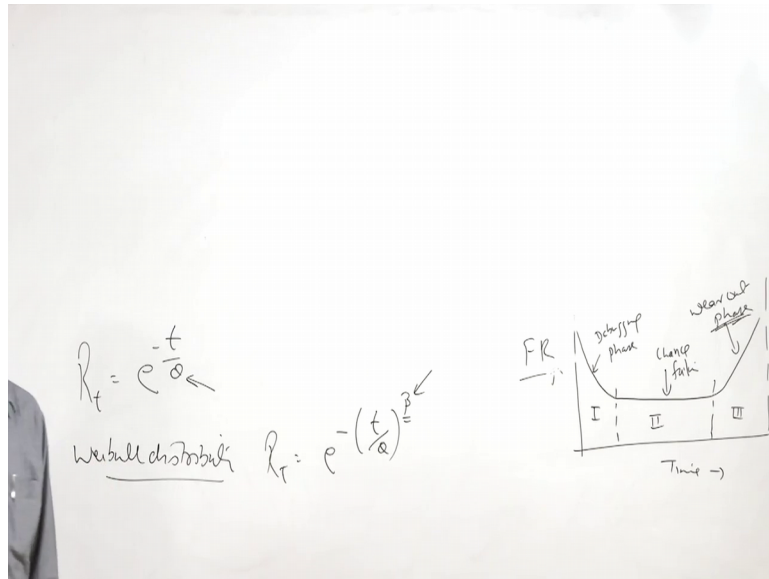 R_t = e^{-t/θ}
Weibull distributi R_T = e^{-(t/θ)^β}
FR
Debugging
phase
Chance
wear out
phase
I
II
III
Time →